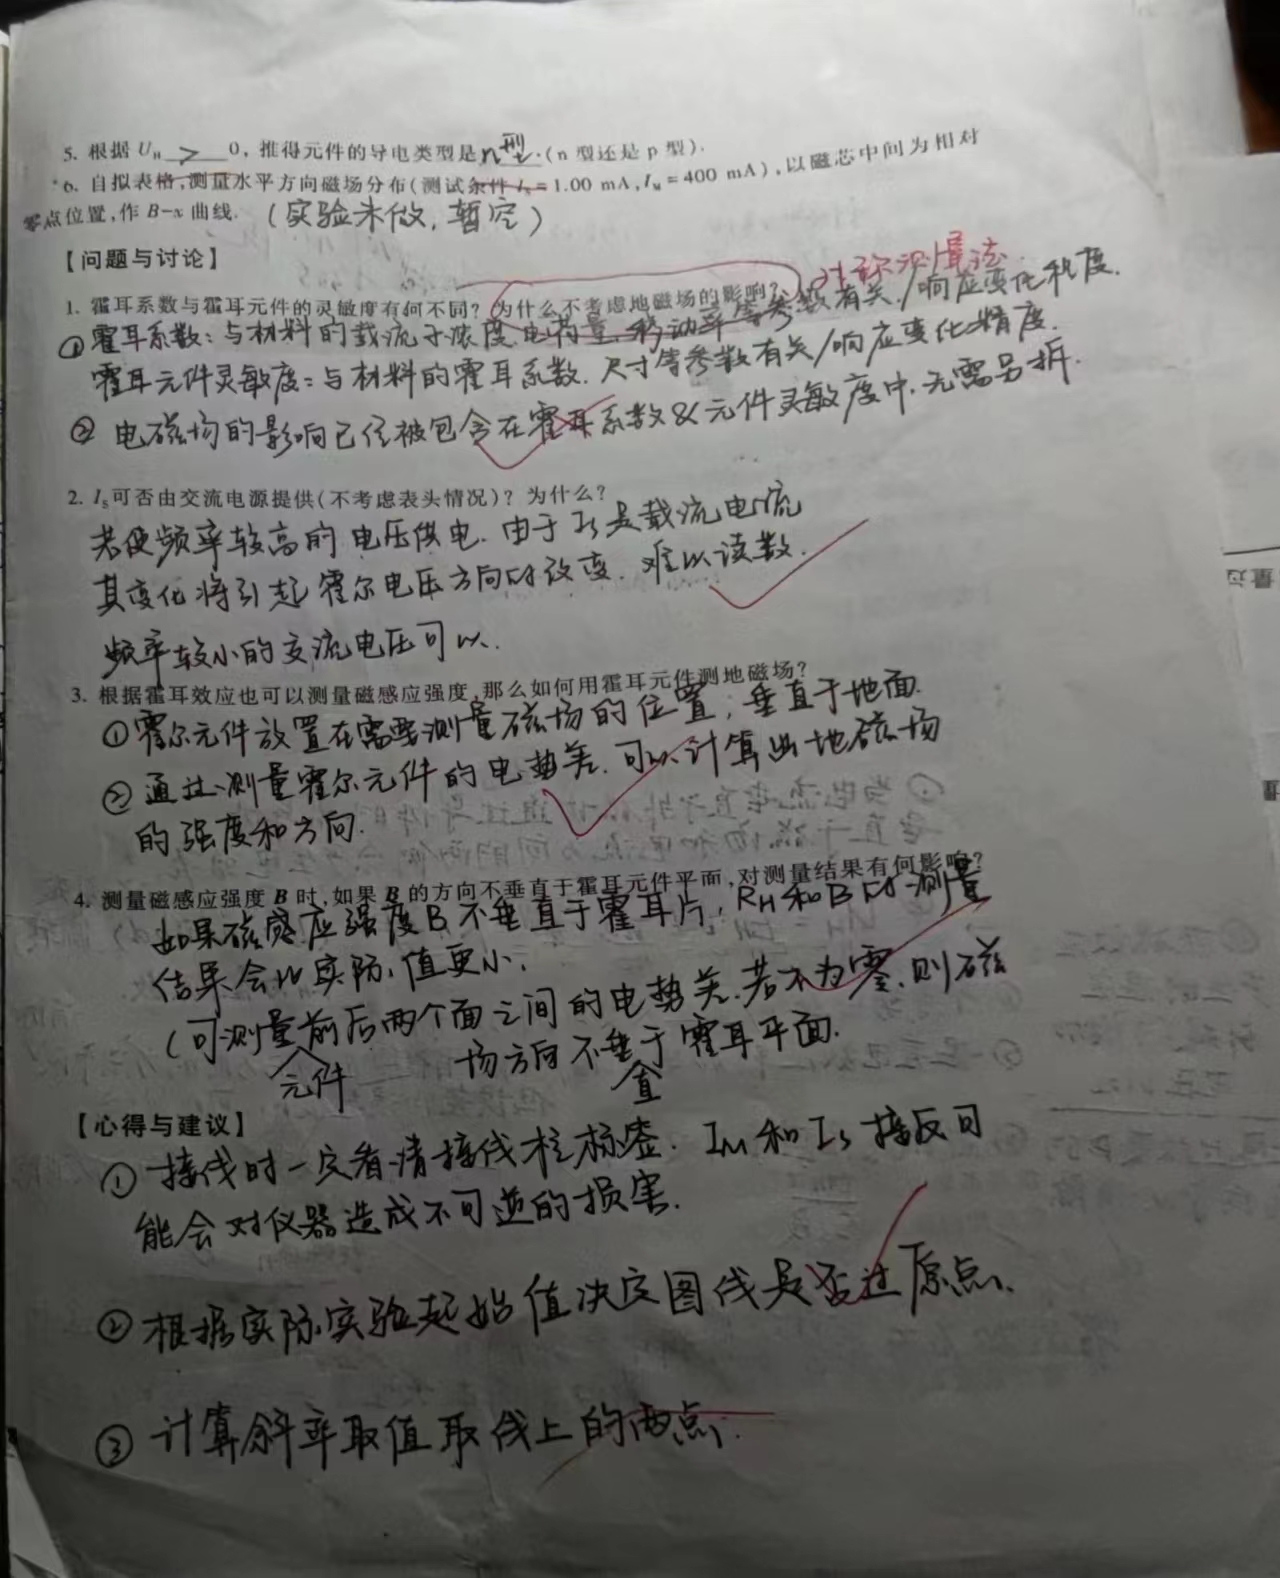 5. 根据 U_H > 0, 推得元件的导电类型是 n型 .(n 型还是 p 型).
*6. 自拟表格,测量水平方向磁场分布(测试条件 I_s=1.00 mA,I_M=400 mA),以磁芯中间为相对
零点位置,作 B-x 曲线. (实验未做,暂空)
【问题与讨论】
对称测量法
1. 霍耳系数与霍耳元件的灵敏度有何不同?为什么不考虑地磁场的影响?
① 霍耳系数:与材料的载流子浓度.电荷量.移动率等参数有关/响应变化程度.
霍耳元件灵敏度:与材料的霍耳系数.尺寸等参数有关/响应变化精度.
② 电磁场的影响已经被包含在霍耳系数&元件灵敏度中.无需另拆.
2. I_s可否由交流电源提供(不考虑表头情况)?为什么?
若使频率较高的电压供电.由于Is是载流电流
其变化将引起霍尔电压方向的改变.难以读数.
频率较小的交流电压可以.
3. 根据霍耳效应也可以测量磁感应强度,那么如何用霍耳元件测地磁场?
① 霍尔元件放置在需要测量磁场的位置,垂直于地面.
② 通过测量霍尔元件的电势差.可以计算出地磁场
的强度和方向.
4. 测量磁感应强度 B 时,如果 B 的方向不垂直于霍耳元件平面,对测量结果有何影响?
如果磁感应强度B不垂直于霍耳片,RH和B的测量
结果会比实际值更小,
(可测量元件前后两个面之间的电势差.若不为零.则磁
场方向不垂直于霍耳平面.
【心得与建议】
① 接线时一定看清接线柱标签. IM和Is接反可
能会对仪器造成不可逆的损害.
② 根据实际实验起始值决定图线是否过原点.
③ 计算斜率取值取线上的两点.